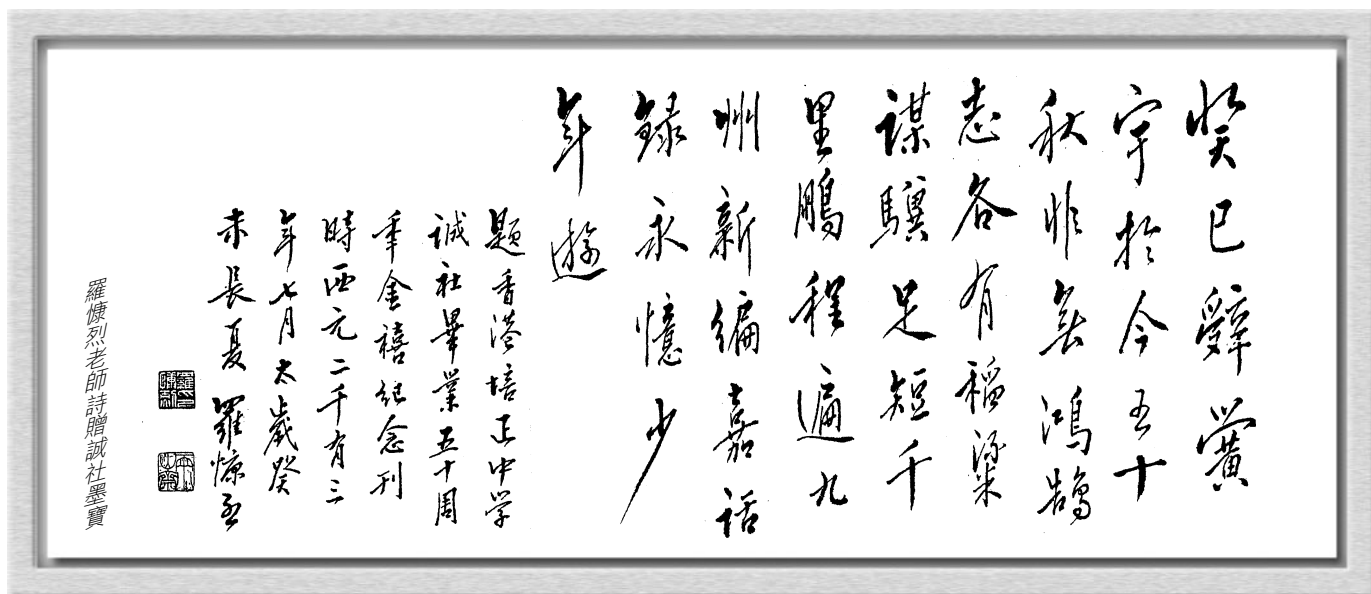 癸巳辭黌
宇於今五十
秋非無鴻鵠
志各有稻粱
謀驥足短千
里鵬程遍九
州新編嘉話
錄永憶少
年遊
題香港培正中学
誠社畢業五十周
年金禧紀念刊
時西元二千有三
年七月太歲癸
未長夏羅慷烈
羅慷烈老師詩贈誠社墨寶